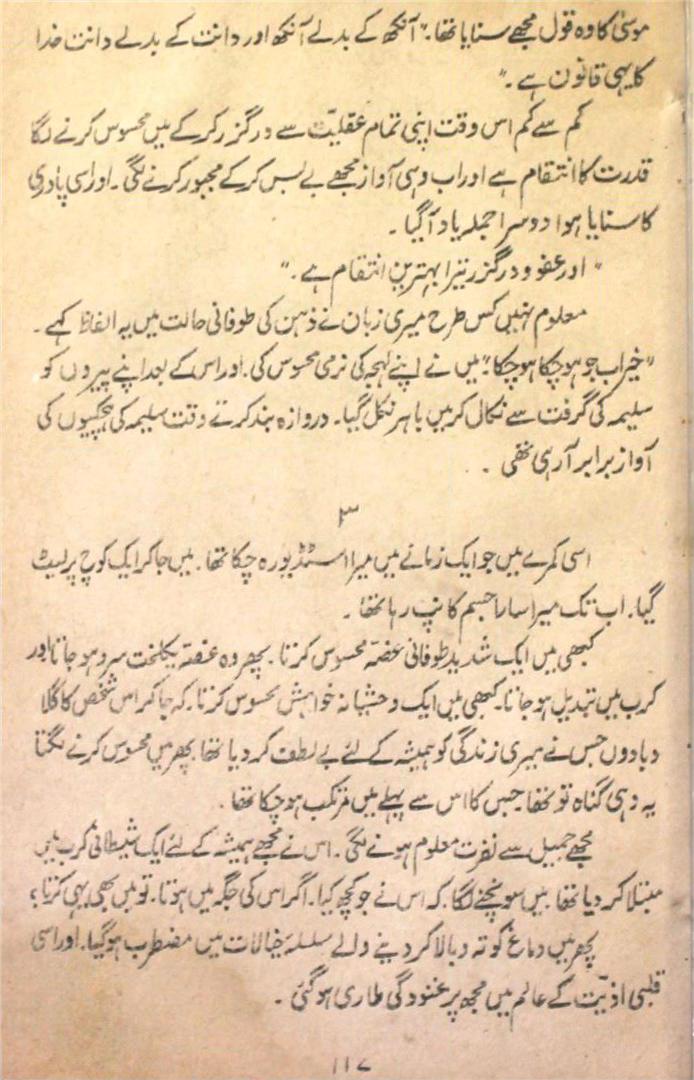 موسیٰ کا وہ قول مجھے سنایا تھا۔ "آنکھ کے بدلے آنکھ اور دانت کے بدلے دانت خدا
کا یہی قانون ہے۔"
کم سے کم اس وقت اپنی تمام عقلیّت سے درگزر کرکے میں محسوس کرنے لگا
قدرت کا انتقام ہے اور اب وہی آواز مجھے بے بس کرکے مجبور کرنے لگی۔ اور اسی پادری
کا سنایا ہوا دوسرا جملہ یاد آگیا۔
"اور عفو و درگزر تیرا بہترین انتقام ہے۔"
معلوم نہیں کس طرح میری زبان نے ذہن کی طوفانی حالت میں یہ الفاظ کہے۔
"خیر اب جو ہوچکا ہوچکا" میں نے اپنے لہجہ کی نرمی محسوس کی۔ اور اس کے بعد اپنے پیروں کو
سلیمہ کی گرفت سے نکال کر میں باہر نکل گیا۔ دروازہ بند کرتے وقت سلیمہ کی ہچکیوں کی
آواز برابر آرہی تھی۔
۳
اسی کمرے میں جو ایک زمانے میں میرا اسٹڈیو رہ چکا تھا۔ میں جاکر ایک کوچ پر لیٹ
گیا۔ اب تک میرا سارا جسم کانپ رہا تھا۔
کبھی میں ایک شدید طوفانی غصّہ محسوس کرتا۔ پھر وہ غصّہ یکلخت سرد ہوجاتا اور
کرب میں تبدیل ہوجاتا۔ کبھی میں ایک وحشیانہ خواہش محسوس کرتا۔ کہ جاکر اس شخص کا گلا
دبادوں جس نے میری زندگی کو ہمیشہ کے لئے بے لطف کردیا تھا۔ پھر میں محسوس کرنے لگتا
یہ وہی گناہ تو تھا جس کا اس سے پہلے میں مرتکب ہوچکا تھا۔
مجھے جمیل سے نفرت معلوم ہونے لگی۔ اس نے مجھے ہمیشہ کے لئے ایک شیطانی کرب میں
مبتلا کردیا تھا۔ میں سوچنے لگا کہ اس نے جو کچھ کیا۔ اگر اس کی جگہ میں ہوتا۔ تو میں بھی یہی کرتا؟
پھر میں دماغ کو تہ و بالا کردینے والے سلسلۂ خیالات میں مضطرب ہوگیا۔ اور اسی
قلبی اذیّت کے عالم میں مجھ پر غنودگی طاری ہوگئی۔
۱۱۷